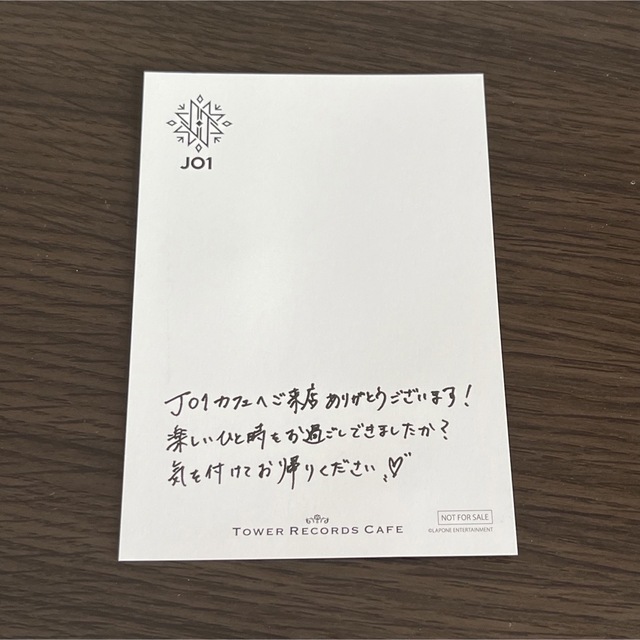 JO1
JO1カフェへご来店ありがとうございます!
楽しいひと時をお過ごしできましたか?
気を付けてお帰りください♡
NOT FOR SALE
TOWER RECORDS CAFE
©LAPONE ENTERTAINMENT